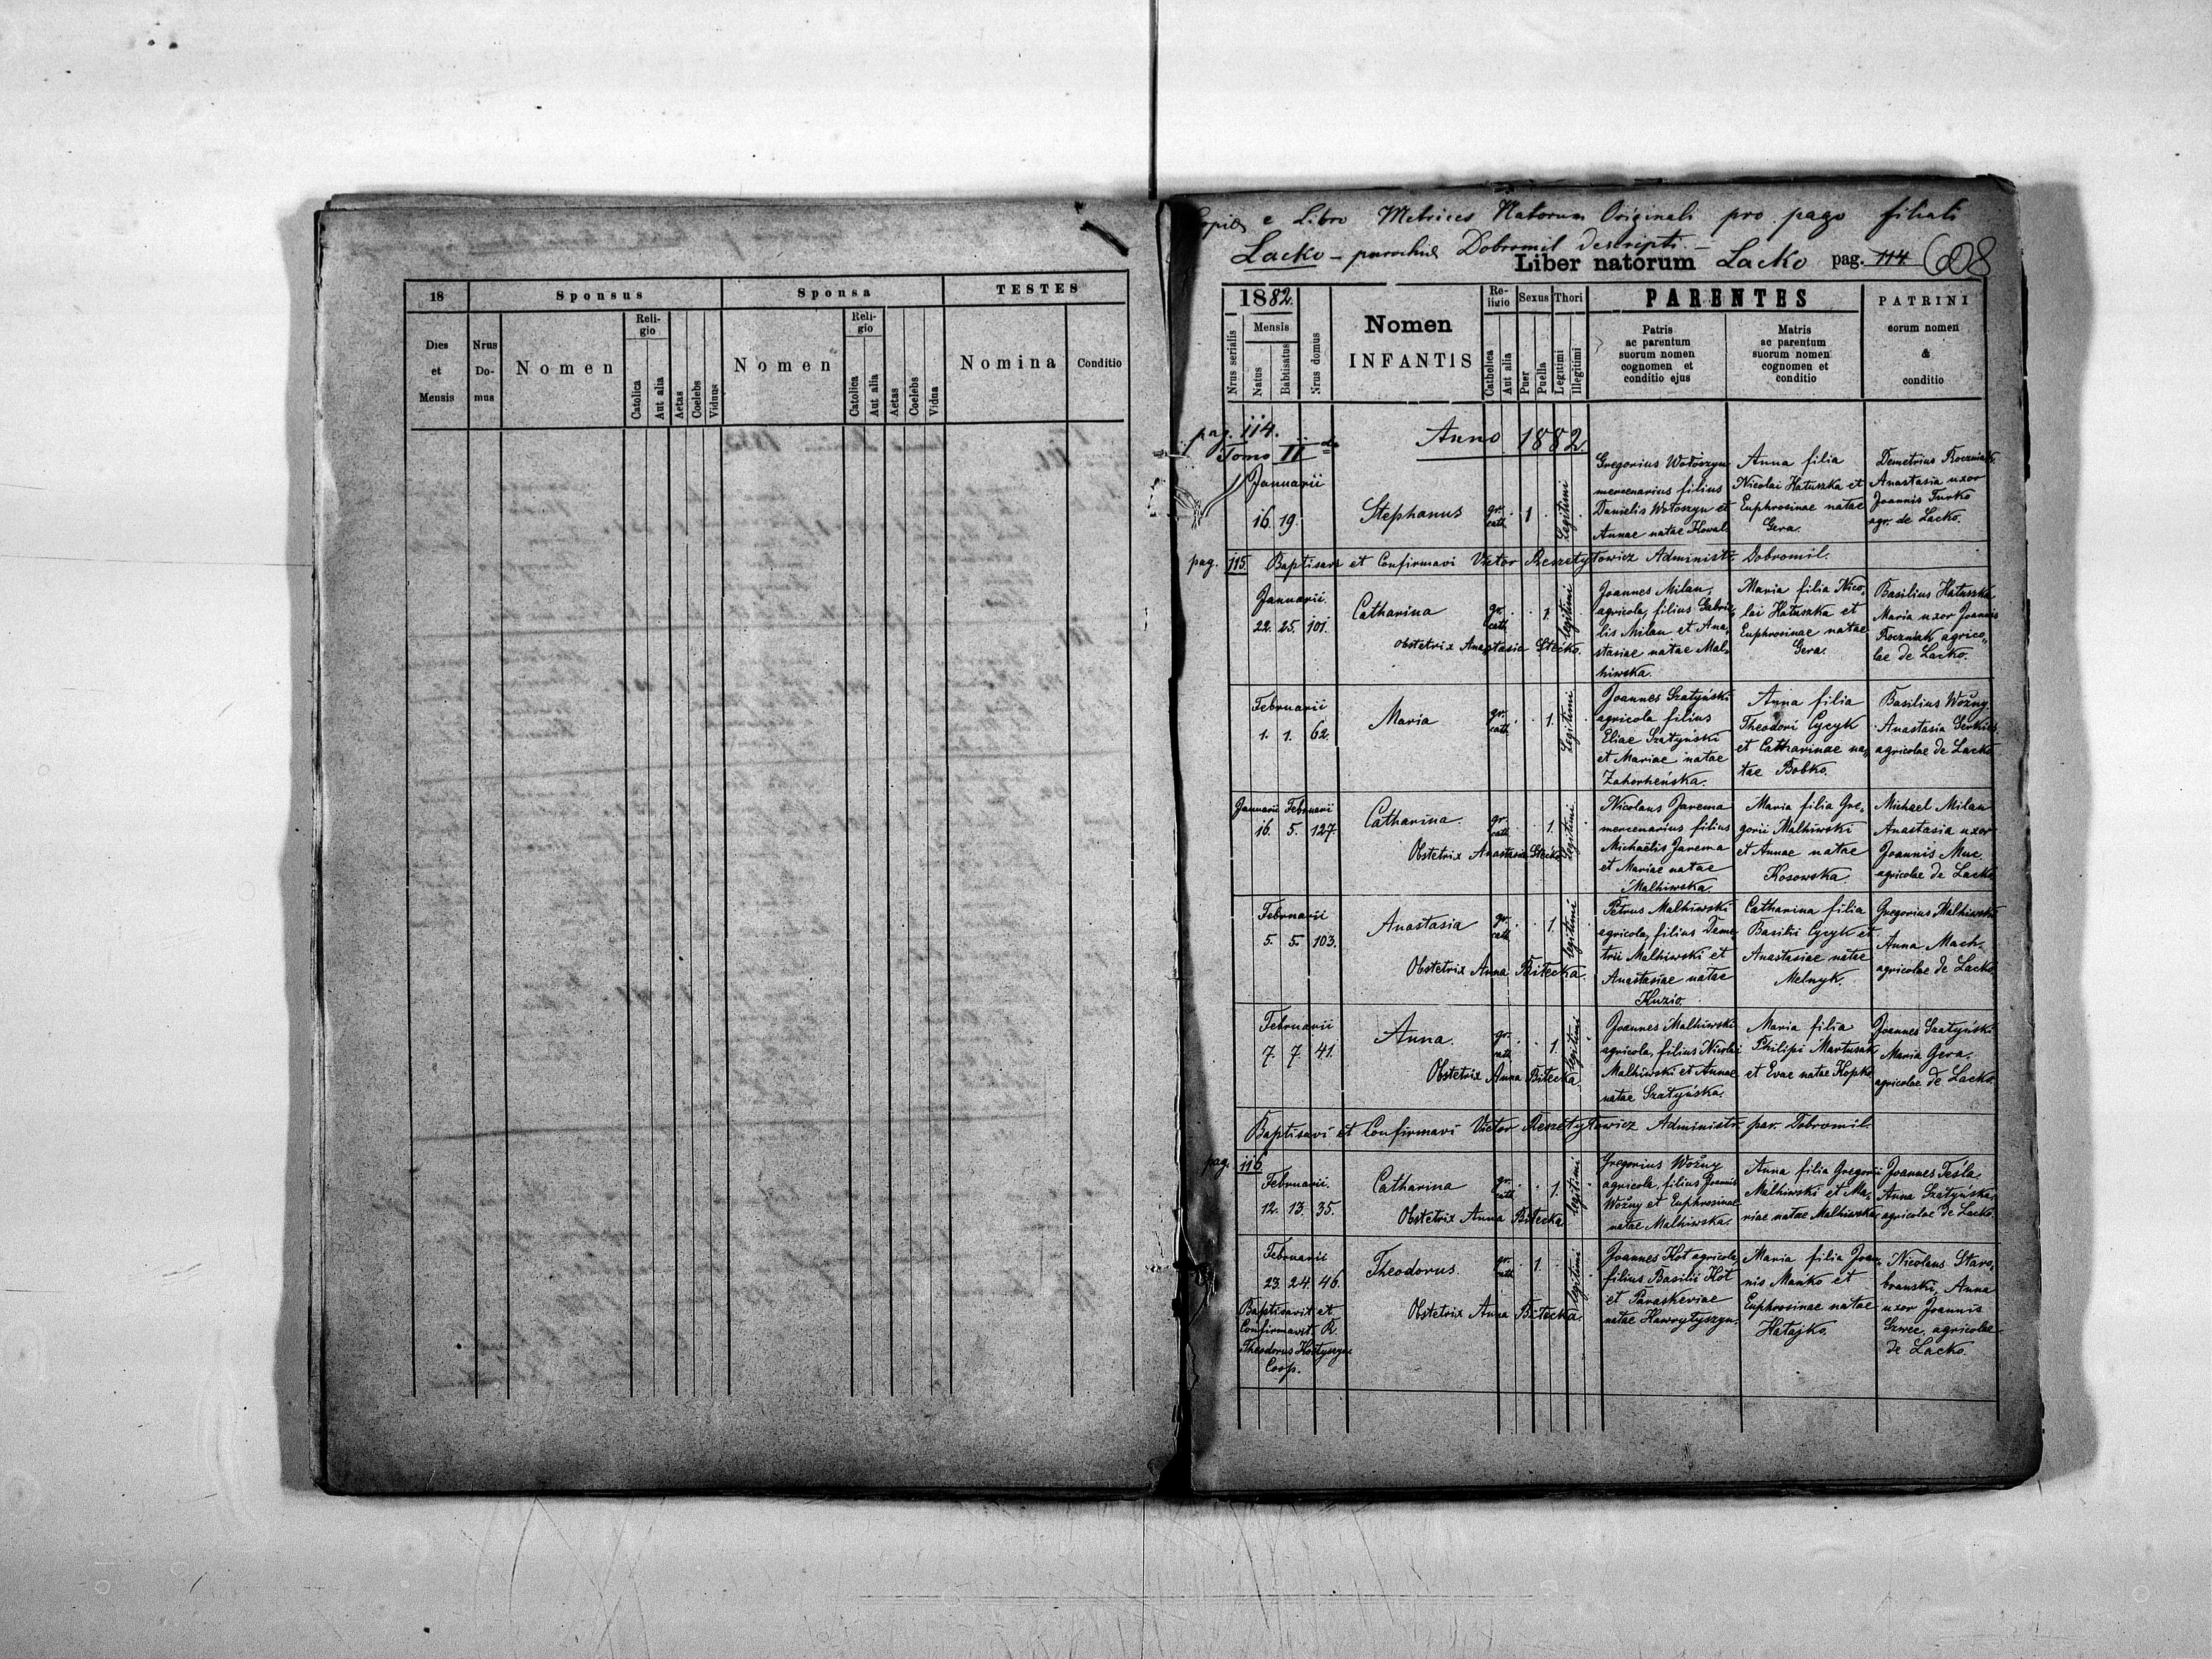 18
Sponsus
Sponsa
TESTES
Dies et Mensis
Nrus Do-mus
Nomen
Religio
Catolica
Aut alia
Aetas
Coelebs
Viduus
Nomen
Religio
Catolica
Aut alia
Aetas
Coelebs
Vidua
Nomina
Conditio
Copia e Libro Metrices Natorum Originali pro pago filiali
Lacko - parochiae Dobromil descripti. -
Liber natorum Lacko pag. 114. 608
1882.
Nrus serialis
Mensis
Natus
Babtisatus
Nrus domus
Nomen
INFANTIS
Re-ligio
Catholica
Aut alia
Sexus
Puer
Puella
Thori
Legitimi
Illegitimi
PARENTES
Patris
ac parentum
suorum nomen
cognomen et
conditio ejus
Matris
ac parentum
suorum nomen
cognomen et
conditio
PATRINI
eorum nomen
&
conditio
pag. 114.
Tomo II do
Anno 1882
Januarii
16. 19.
Stephanus
gr. cath.
1
Legitimi
Gregorius Wołoszyn
mercenarius filius
Danielis Wołoszyn et
Annae natae Kowal.
Anna filia
Nicolai Hatuszka et
Euphrosinae natae
Gera.
Demetrius Roczniak.
Anastasia uxor
Joannis Turko
agr. de Lacko.
pag. 115. Baptisavi et Confirmavi Victor Reszetyłowicz Administr. Dobromil.
Januarii.
22. 25. 101.
Catharina
gr. cath.
1.
Legitimi
obstetrix Anastasia Stećko.
Joannes Milan,
agricola, filius Gabrie-
lis Milan et Ana-
stasiae natae Mal-
hiwska.
Maria filia Nico-
lai Hatuszka et
Euphrosinae natae
Gera.
Basilius Hatuszka
Maria uxor Joannis
Roczniak agrico-
lae de Lacko.
Februarii
1. 1. 62.
Maria
gr. cath.
1.
Legitimi
Joannes Szatyński
agricola filius
Eliae Szatyński
et Mariae natae
Zahorheńska.
Anna filia
Theodori Cycyk
et Catharinae na-
tae Bobko.
Basilius Woźny
Anastasia Serkies
agricolae de Lacko
Januarii Februarii
16. 5. 127.
Catharina.
gr. cath.
1.
Legitimi
Obstetrix Anastasia Stećko
Nicolaus Jarema
mercenarius filius
Michaelis Jarema
et Mariae natae
Malhiwska.
Maria filia Gre-
gorii Malhiwski
et Annae natae
Kosowska
Michael Milan
Anastasia uxor
Joannis Muc.
agricolae de Lacko
Februarii
5. 5. 103.
Anastasia
gr. cath.
1.
Legitimi
Obstetrix Anna Bitecka.
Petrus Malhiwski
agricola, filius Deme-
trii Malhiwski et
Anastasiae natae
Kuzio.
Catharina filia
Basilii Cycyk et
Anastasiae natae
Melnyk.
Gregorius Malhiwski
Anna Mach.
agricolae de Lacko.
Februarii
7. 7. 41.
Anna.
gr. cath.
1.
Legitimi
Obstetrix Anna Bitecka
Joannes Malhiwski
agricola, filius Nicolai
Malhiwski et Annae
natae Szatyńska.
Maria filia
Philipi Martusak
et Evae natae Kopko
Joannes Szatyński
Maria Gera.
agricolae de Lacko.
Baptisavi et Confirmavi Victor Reszetyłowicz Administr. par. Dobromil.
pag. 116.
Februarii.
12. 13. 35.
Catharina
gr. cath.
1.
Legitimi
Obstetrix Anna Bitecka
Gregorius Woźny
agricola, filius Joannis
Woźny et Euphrosinae
natae Malhiwska.
Anna filia Gregorii
Malhiwski et Ma-
riae natae Malhiwska
Joannes Tesla.
Anna Szatyńska,
agricolae de Lacko.
Februarii
23. 24. 46.
Theodorus
gr. cath.
1.
Legitimi
Obstetrix Anna Bitecka.
Baptisavit et
Confirmavit R.
Theodorus
Coop.
Joannes Kot agricola
filius Basilii Kot
et Paraskeviae
natae Hawrytyszyn.
Maria filia Joan-
nis Mańko et
Euphrosinae natae
Hatajko.
Nicolaus Staro-
branski, Anna
uxor Joannis
Szwec, agricolae
de Lacko.